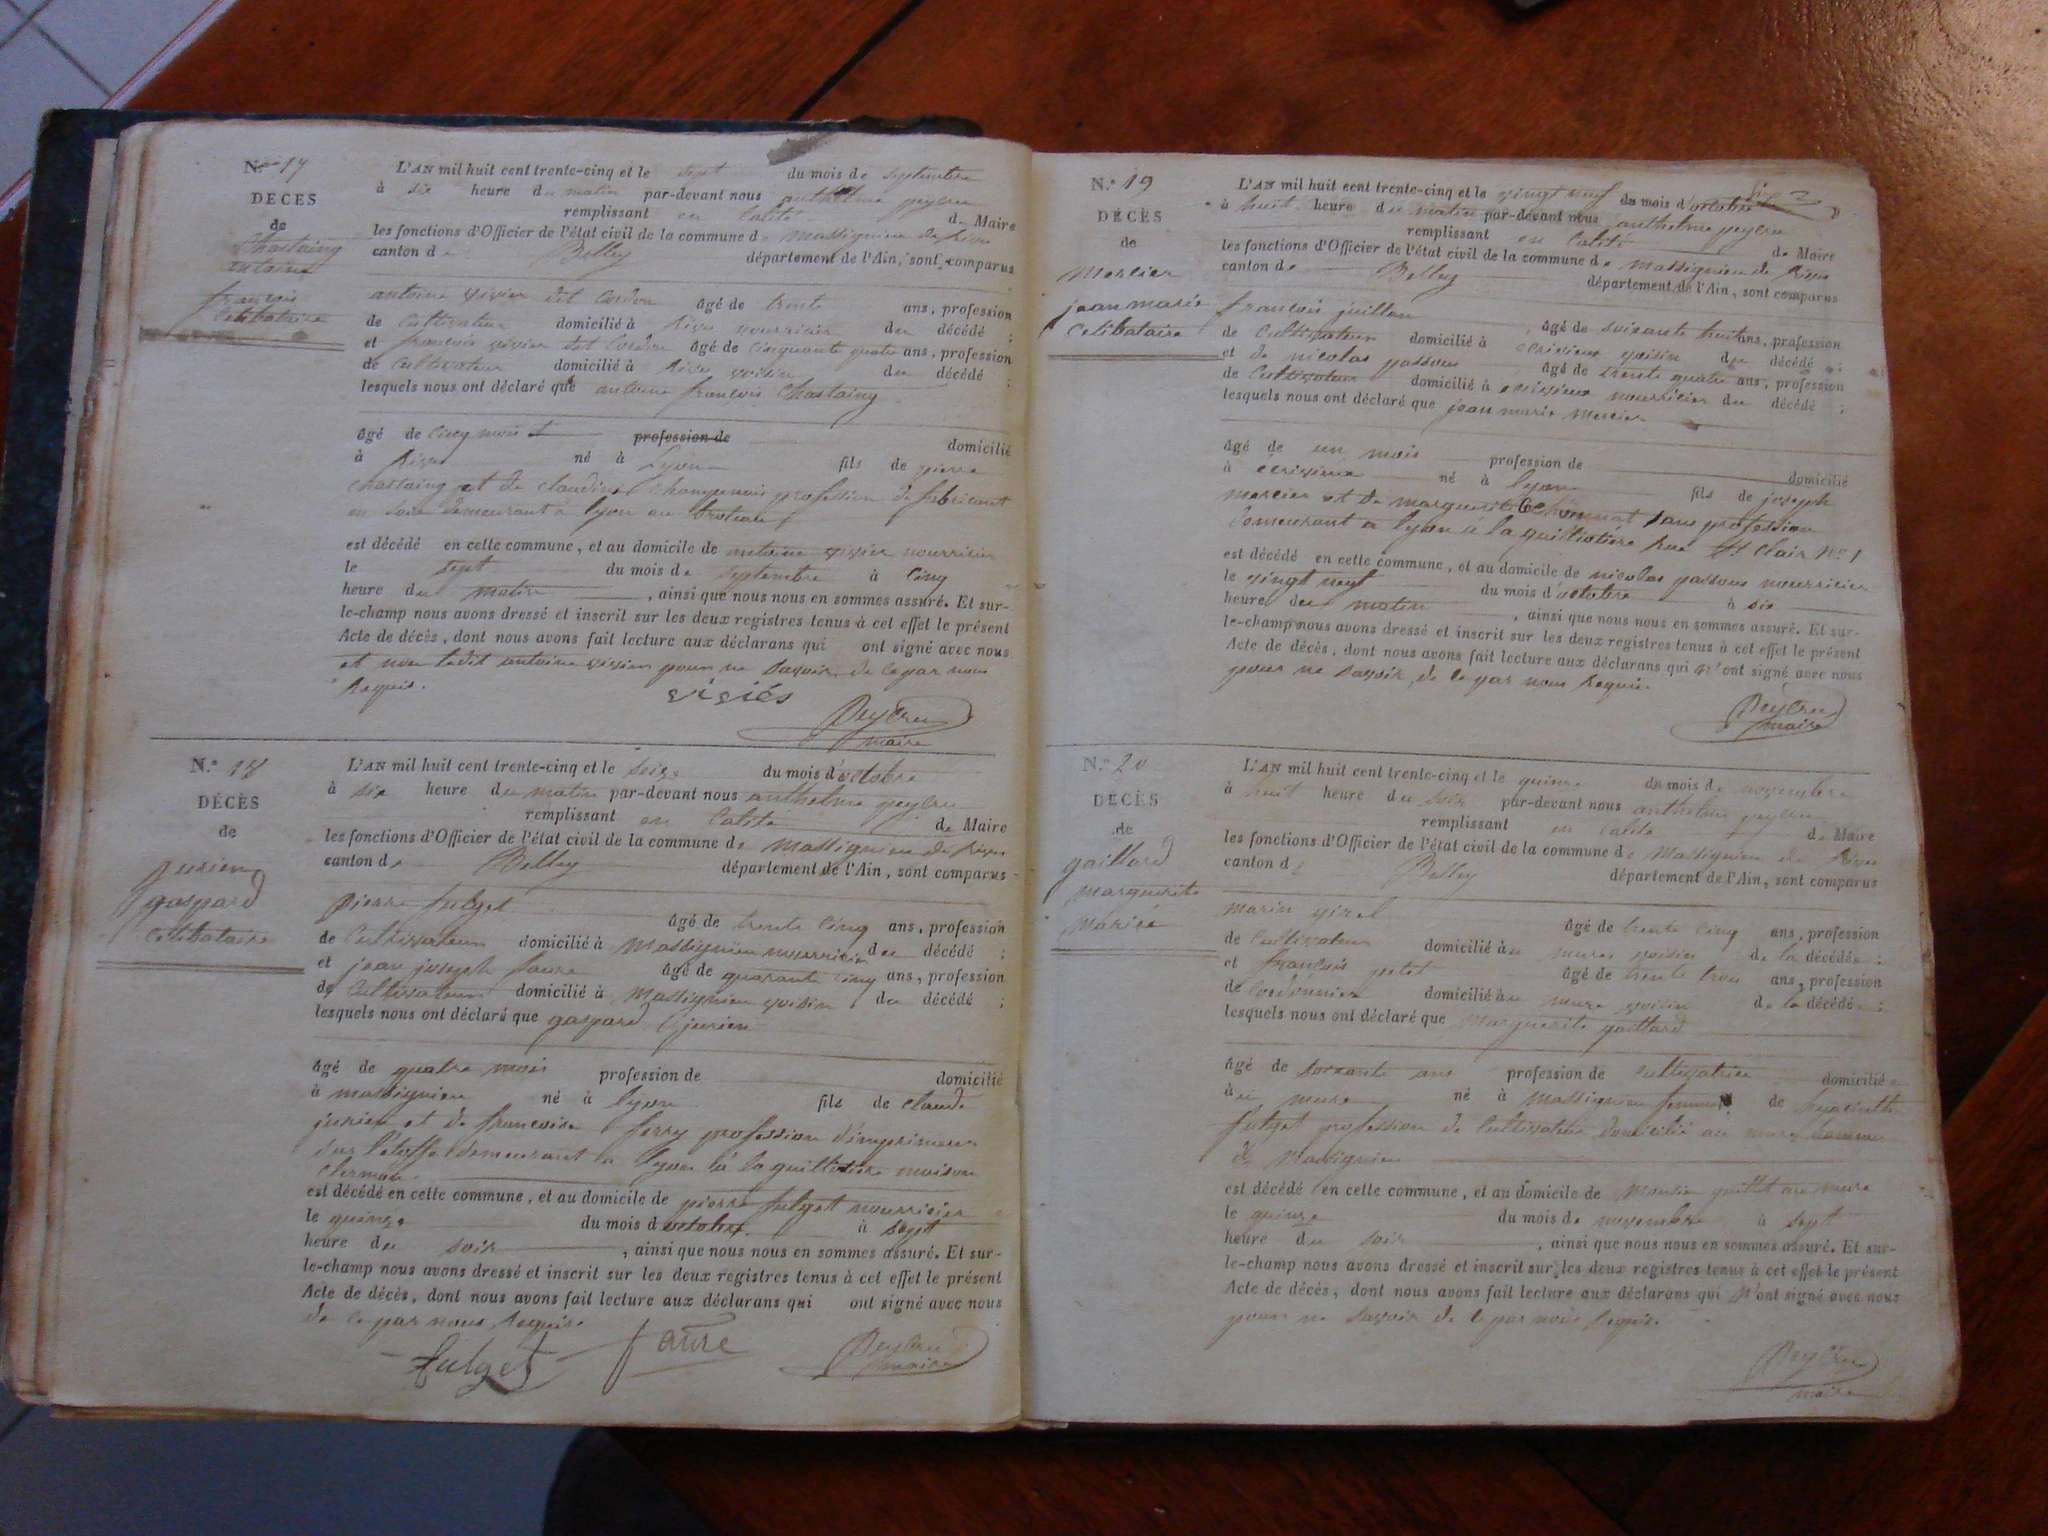 N.º 17
DECES
de
Chastaing
antoine
françois
Celibataire
L'AN mil huit cent trente-cinq et le sept du mois de septembre
à six heure du matin par-devant nous anthelme peyru
remplissant en calité de Maire
les fonctions d'Officier de l'état civil de la commune de massignieu de Rives
canton de Belley département de l'Ain, sont comparus
antoine vivier dit Cordon âgé de trente ans, profession
de Cultivateur domicilié à Rives nourricier du décédé ;
et françois vivier dit Cordon âgé de cinquante quatre ans, profession
de Cultivateur domicilié à Rives voisin du décédé ;
lesquels nous ont déclaré que antoine françois Chastaing
âgé de cinq mois profession de domicilié
à Rives né à Lyon fils de pierre
chastaing et de claudine profession de fabricant
en soie demeurant a lyon au
est décédé en cette commune, et au domicile de antoine vivier nourricier
le sept du mois de septembre à cinq
heure du matin , ainsi que nous nous en sommes assuré. Et sur-
le-champ nous avons dressé et inscrit sur les deux registres tenus à cet effet le présent
Acte de décès, dont nous avons fait lecture aux déclarans qui ont signé avec nous
et non ledit antoine vivier pour ne savoir de ce par nous
Requis.
viviés
peyru
maire
N.º 18
DÉCÈS
de
jurien
gaspard
Celibataire
L'AN mil huit cent trente-cinq et le seize du mois d'octobre
à six heure du matin par-devant nous anthelme peyru
remplissant en calité de Maire
les fonctions d'Officier de l'état civil de la commune de massignieu de Rives
canton de Belley département de l'Ain, sont comparus
pierre fulget âgé de trente cinq ans, profession
de Cultivateur domicilié à massignieu nourricier du décédé ;
et jean joseph faure âgé de quarante cinq ans, profession
de Cultivateur domicilié à massignieu voisin du décédé ;
lesquels nous ont déclaré que gaspard jurien
âgé de quatre mois profession de domicilié
à massignieu né à lyon fils de claude
jurien et de francoise ferry profession d'imprimeur
sur l'étoffe demeurant a lyon à la guillotière maison
est décédé en cette commune, et au domicile de pierre fulget nourricier
le quinze du mois d'octobre à sept
heure du soir , ainsi que nous nous en sommes assuré. Et sur-
le-champ nous avons dressé et inscrit sur les deux registres tenus à cet effet le présent
Acte de décès, dont nous avons fait lecture aux déclarans qui ont signé avec nous
de ce par nous Requis.
fulget faure peyru
maire
N.º 19
DÉCÈS
de
Mercier
jean marie
Celibataire
L'AN mil huit cent trente-cinq et le vingt neuf du mois d'octobre
à huit heure du matin par-devant nous anthelme peyru
remplissant en calité de Maire
les fonctions d'Officier de l'état civil de la commune de massignieu de Rives
canton de Belley département de l'Ain, sont comparus
francois juillon âgé de soixante huit ans, profession
de Cultivateur domicilié à voisin du décédé ;
et de nicolas passous âgé de trente quatre ans, profession
de Cultivateur domicilié à nourricier du décédé ;
lesquels nous ont déclaré que jean marie mercier
âgé de un mois profession de domicilié
à né à lyon fils de joseph
mercier et de marguerite sans profession
demeurant a lyon à la guilliotiere Rue St Clair N.º 1
est décédé en cette commune, et au domicile de nicolas passous nourricier
le vingt neuf du mois d'octobre à six
heure du matin , ainsi que nous nous en sommes assuré. Et sur-
le-champ nous avons dressé et inscrit sur les deux registres tenus à cet effet le présent
Acte de décès, dont nous avons fait lecture aux déclarans qui n'ont signé avec nous
pour ne savoir de ce par nous Requis.
peyru
maire
N.º 20
DÉCÈS
de
gaillard
marguerite
mariée
L'AN mil huit cent trente-cinq et le quinze du mois de novembre
à huit heure du soir par-devant nous anthelme peyru
remplissant en calité de Maire
les fonctions d'Officier de l'état civil de la commune de massignieu de Rives
canton de Belley département de l'Ain, sont comparus
marin girel âgé de trente cinq ans, profession
de Cultivateur domicilié au mure voisin de la décédée ;
et françois petet âgé de trente trois ans, profession
de Cordonnier domicilié au mure voisin de la décédée ;
lesquels nous ont déclaré que marguerite gaillard
âgé de soixante ans profession de cultivatrice domicilié
au mure né à massignieu femme de hyacinthe
fulget profession de Cultivateur domicilié au mure
de massignieu
est décédé en cette commune, et au domicile de au mure
le quinze du mois de novembre à sept
heure du soir , ainsi que nous nous en sommes assuré. Et sur-
le-champ nous avons dressé et inscrit sur les deux registres tenus à cet effet le présent
Acte de décès, dont nous avons fait lecture aux déclarans qui n'ont signé avec nous
pour ne savoir de ce par nous Requis.
peyru
maire